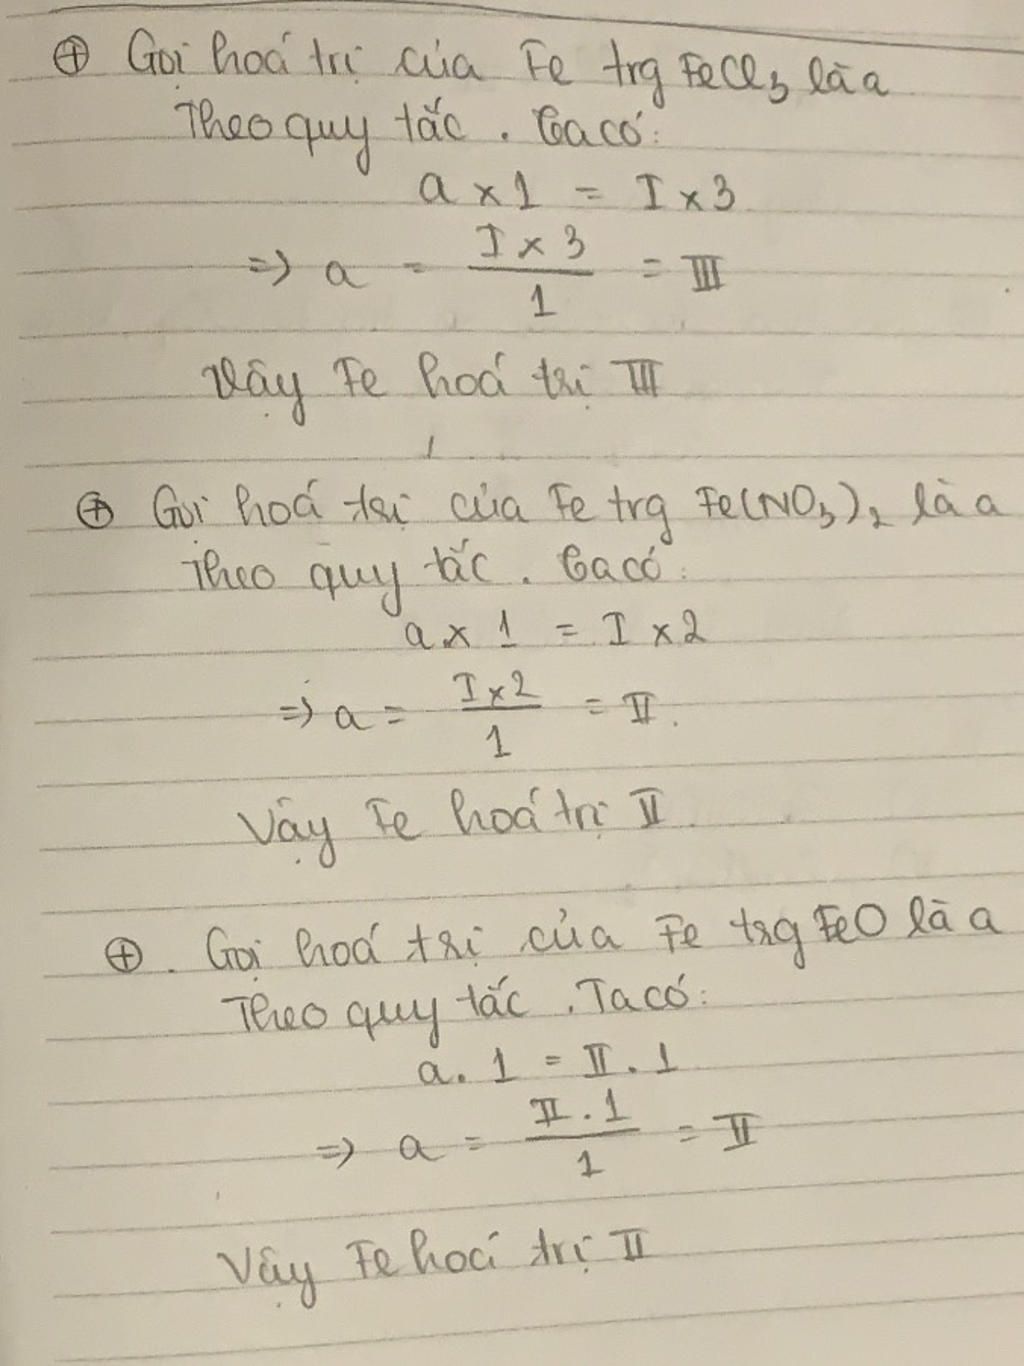 ⊕ Gọi hoá trị của Fe trg FeCl₃ là a
Theo quy tắc. Ta có:
a × 1 = I × 3
=> a = (I × 3)/1 = III
Vậy Fe hoá trị III
⊕ Gọi hoá trị của Fe trg Fe(NO₃)₂ là a
Theo quy tắc. Ta có:
a × 1 = I × 2
=> a = (I × 2)/1 = II.
Vậy Fe hoá trị II
⊕. Gọi hoá trị của Fe trg FeO là a
Theo quy tắc. Ta có:
a. 1 = II. 1
=> a = (II. 1)/1 = II
Vậy Fe hoá trị II